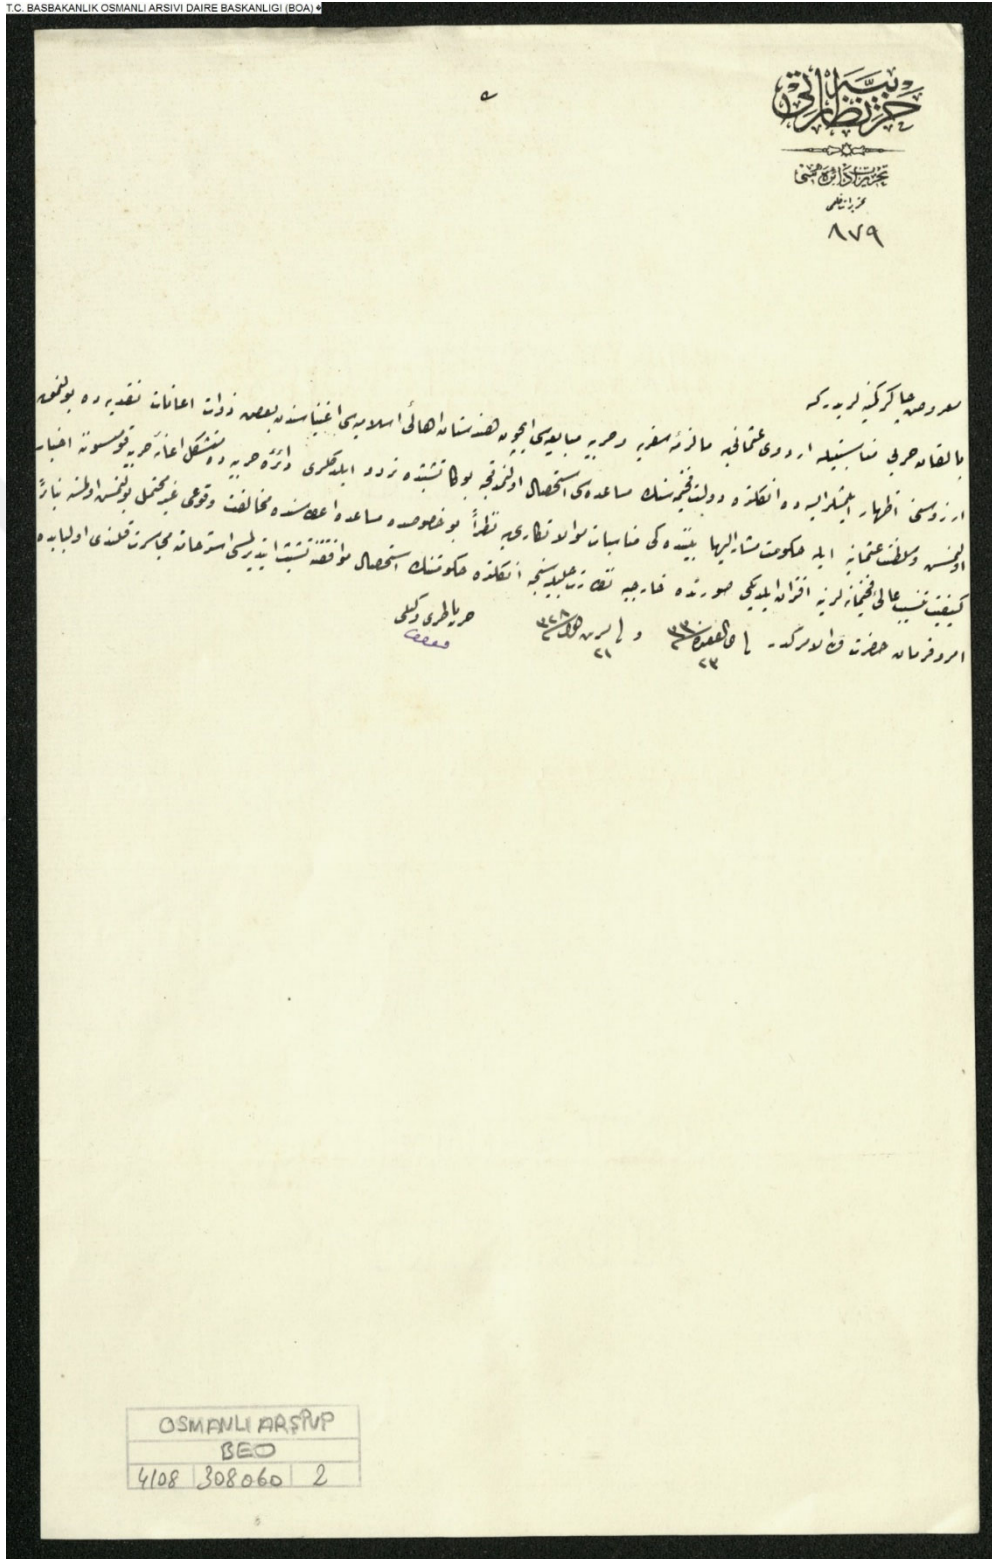 T.C. BASBAKANLIK OSMANLI ARSIVI DAIRE BASKANLIGI (BOA)
حربیه نظارتی
تحریرات دائره سی
٨٧٩
معروض چاکر کمینه لریدر که
بالقان حربی مناسبتیله اردوی عثمانی مالزمۀ سفریه و حربیه مبایعه سی ایچون هندستان اهالئ اسلامیه سی اغنیاسندن بعض ذوات اعانات نقدیه ده بولنمق
ارزوسنی اظهار ایتمشلر ایسه ده انکلتره دولت فخیمه سنك مساعده سی استحصال اولنمدقجه بوکا تشبثده تردد ایلدکلری دائرۀ حربیه ده متشکل اعانۀ حربیه قومسیونندن اخبار
اولنمش و سلطنت عثمانیه ایله حکومت مشار الیها بیننده کی مناسبات موالاتکاری یه نظراً بو خصوصده مساعده اعطاسنده مخالفت وقوعی غیر محتمل بولنمش اولمغله
کیفیت تنسیب عالئ فخیمانه لرینه اقتران ایلدیکی صورتده خارجیه نظارت جلیله سنجه انکلتره حکومتنك استحصال موافقتنه تشبث ایتدیرلمسی استرحامنه مجاسرت قلندی اولبابده
امر و فرمان حضرت ولی الامرکدر فی ذی القعده ٣٣٠ و فی تشرین اول ٣٢٨
٢٣ ٢١
حربیه ناظری وکیلی
OSMANLI ARŞİVİ
BEO
4108 308060 2